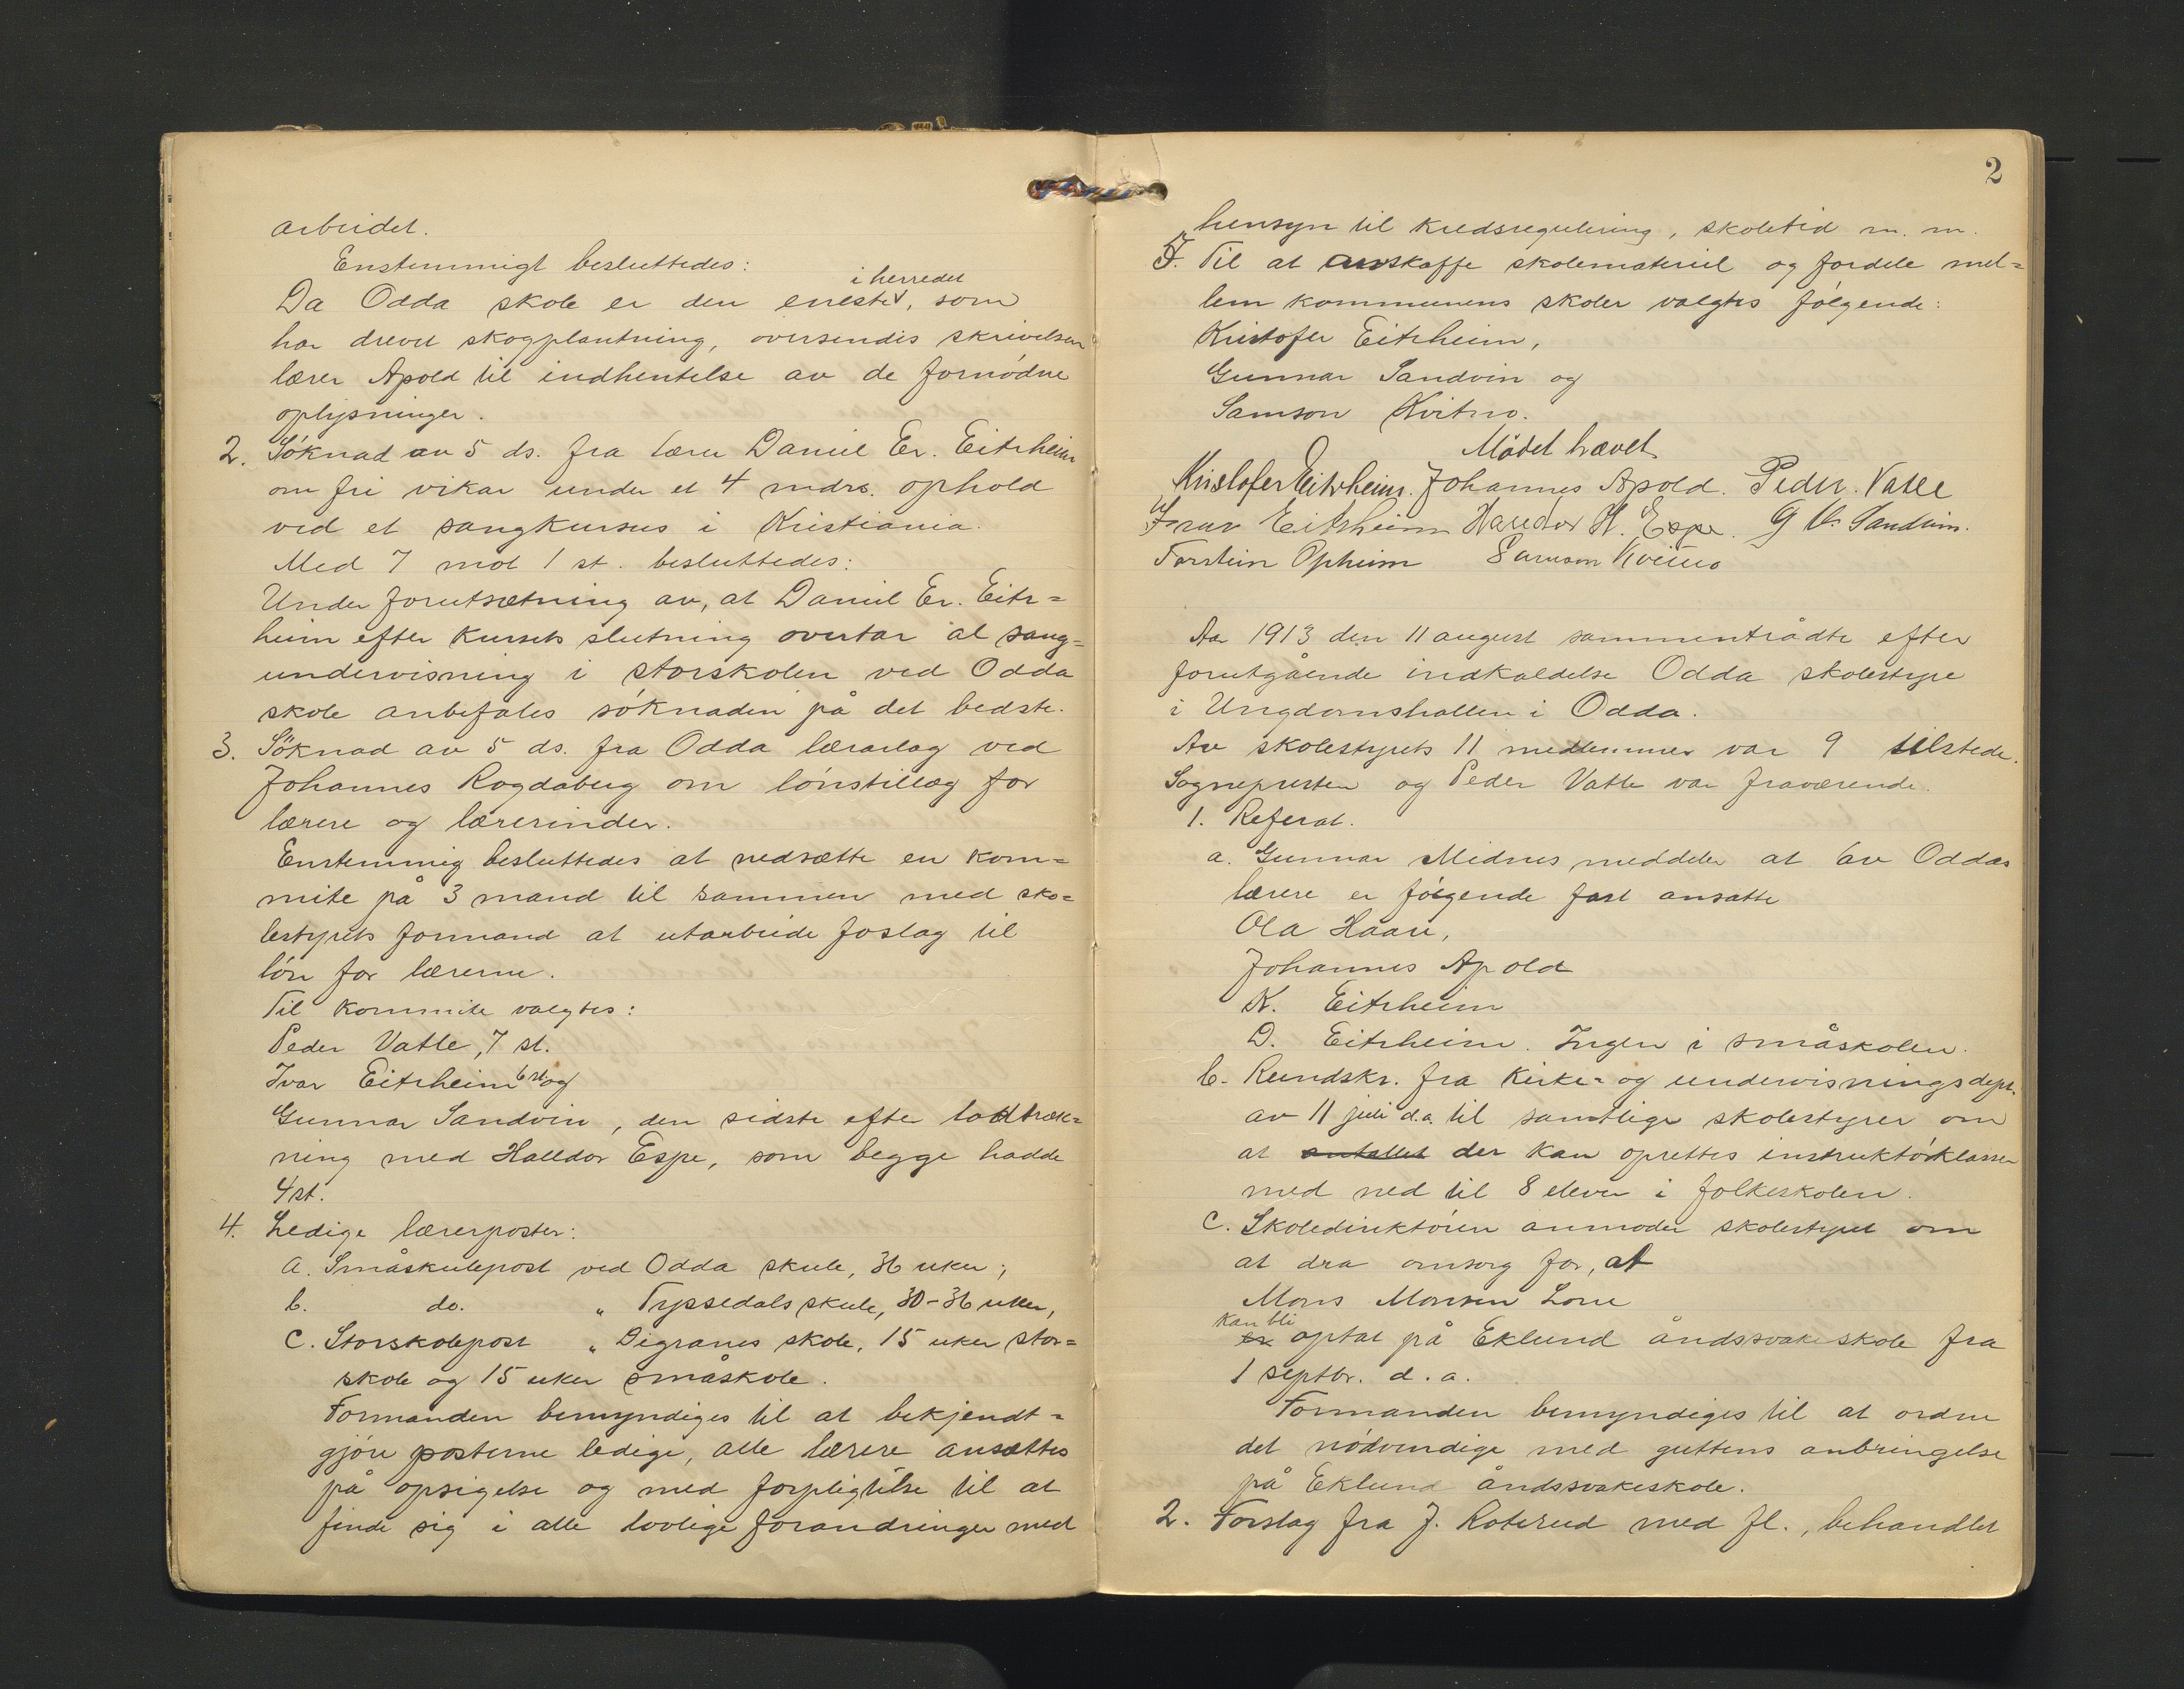 arbeidet.
Enstemmigt besluttedes:
i herredet
Da Odda skole er den eneste, som
har drevet skogplantning, oversendes skrivelsen
lærer Apold til indhentelse av de fornødne
oplysninger.
2. Søknad av 5 ds. fra lærer Daniel Er. Eitrheim
om fri vikar under et 4 mdrs. ophold
ved et sangkursus i Kristiania.
Med 7 mot 1 st. besluttedes:
Under forutsætning av, at Daniel Er. Eitr=
heim efter kursets slutning overtar al sang=
undervisning i storskolen ved Odda
skole anbefales søknaden på det bedste.
3. Søknad av 5 ds. fra Odda lærarlag ved
Johannes Rogdaberg om lønstillæg for
lærere og lærerinder.
Enstemmig besluttedes at nedsætte en kom=
mite på 3 mand til sammen med sko=
lestyrets formand at utarbeide foslag til
løn for lærerne.
Til kommite valgtes:
Peder Vatle, 7 st.
Ivar Eitrheim 6 st og
Gunnar Sandvin, den sidste efter lodtræk=
ning med Halldor Espe, som begge hadde
4 st.
4. Ledige lærerposter:
a. Småskulepost ved Odda skule, 36 uker;
b. do. „ Tyssedals skule, 30-36 uker,
c. Storskolepost „ Digranes skole, 15 uker stor=
skole og 15 uker småskole.
Formanden bemyndiges til at bekjendt=
gjøre posterne ledige, alle lærere ansættes
på opsigelse og med forpligtelse til at
finde sig i alle lovlige forandringer med
2
hensyn til kredsregulering, skoletid m. m.
5. Til at anskaffe skolemateriel og fordele mel=
lem kommunens skoler valgtes følgende:
Kristofer Eitrheim,
Gunnar Sandvin og
Samson Kvitno.
Mødet hævet
Kristofer Eitrheim. Johannes Apold. Peder Vatle
Ivar Eitrheim Halldor H. Espe. G Sandvin.
Torstein Opheim Samson Kvitno
Aar 1913 den 11 august sammentrådte efter
forutgående indkaldelse Odda skolestyre
i Ungdomshallen i Odda.
Av skolestyrets 11 medlemmer var 9 tilstede.
Sognepresten og Peder Vatle var fraværende.
1. Referat.
a. Gunnar Midnes meddeler at av Oddas
lærere er følgende fast ansatte
Ola Haare,
Johannes Apold
K. Eitrheim
D. Eitrheim. Ingen i småskolen.
b. Rundskr. fra Kirke= og undervisningsdept.
av 11 juli d.a. til samtlige skolestyrer om
at antallet der kan oprettes instruktørklasser
med ned til 8 elever i folkeskolen.
c. Skoledirektøren anmoder skolestyret om
at dra omsorg for, at
Mons Monsen Lone
kan bli
er optat på Eklund åndssvakeskole fra
1 septbr. d. a.
Formanden bemyndiges til at ordne
det nødvendige med guttens anbringelse
på Eklund åndssvakeskole.
2. Forslag fra J. Roterud med fl., behandlet